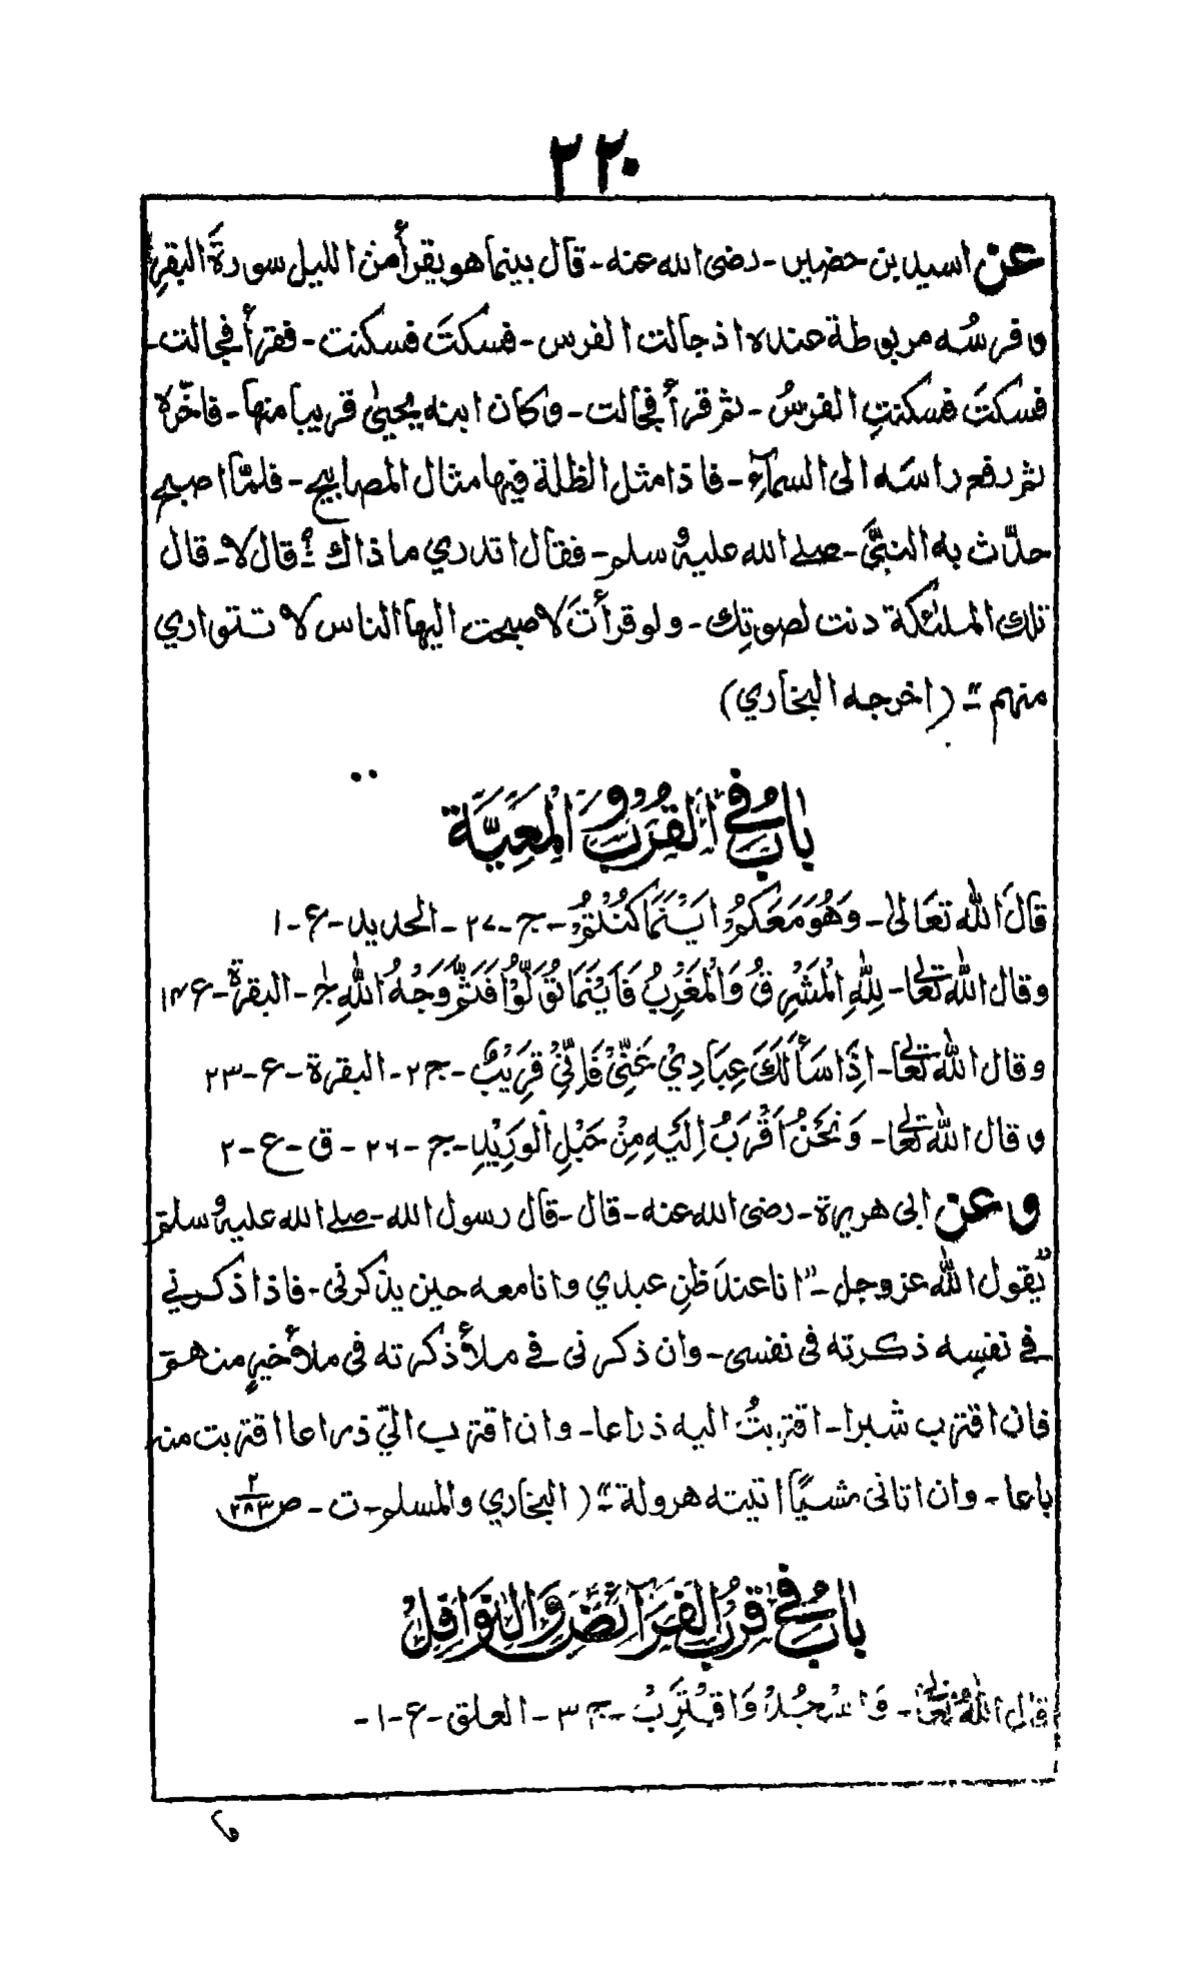 ۲۲۰
عن اسید بن حضیر - رضی الله عنه - قال بینما هو یقرأ من اللیل سورة البقرة
و فرسُه مربوطة عنده اذ جالت الفرس - فسکتَ فسکنت - فقرأ فجالت -
فسکتَ فسکنتِ الفرسُ - ثم قرأ فجالت - و کان ابنه یحییٰ قریبا منها - فاخّره
ثم رفع راسَه الی السمآءِ - فاذا مثل الظلة فیها مثال المصابیح - فلمّا اصبح
حدّث به النبیَّ - صلے الله علیه و سلم - فقال اتدري ما ذاك؟ قال لا - قال
تلك الملئکة دنت لصوتِك - و لو قرأتَ لاصبحت الیها الناس لا تتواري
منهم ” - (اخرجه البخاري)
بابٌ فی القُرْبِ وَ الْمَعِیَّة
قالَ اللّٰه تعَالیٰ - وَهُوَ مَعَکُمْ اَیْنَمَا کُنْتُمْ - ج - ۲۷ - الحدید - ع - ۱
وقال اللّٰه تعالےٰ - لِلّٰهِ الْمَشْرِقُ وَالْمَغْرِبُ فَاَیْنَمَا تُوَلُّوْا فَثَمَّ وَجْهُ اللّٰهِ ج۱ - البقرة - ع ۱۴
و قال اللّٰه تعالےٰ - اِذَا سَأَلَكَ عِبَادِيْ عَنِّیْ فَاِنِّیْ قَرِیْبٌ - ج ۲ - البقرة - ع - ۲۳
و قال اللّٰه تعالےٰ - وَنَحْنُ اَقْرَبُ اِلَیْهِ مِنْ حَبْلِ الْوَرِیْدِ - ج - ۲۶ - ق - ع - ۲
و عن ابی هریرة - رضی الله عنه - قال - قال رسول الله - صلے الله علیه و سلم
یقول اللّٰه عز وجل - ” انا عندَ ظنِ عبدي و انا معه حین یذکرنی - فاذا ذکرني
فی نفسِه ذکرته فی نفسی - وان ذکرنی فی ملأ ذکرته فی ملأ خیرٍ منهم
فان اقترب شبرا - اقتربتُ الیه ذراعا - و ان اقترب الیّ ذراعا اقتربت منه
باعا - و ان اتانی مشیًا اتیته هرولة “ - (البخاري و المسلم - ت - ص ۲/۲۸۳
بابٌ فی قربُ الفَرَآئضِ وَ النوَافِلْ
قال اللّٰه تعالےٰ - وَاسْجُدْ وَاقْتَرِبْ - ج ۳۰ - العلق - ع - ۱ -